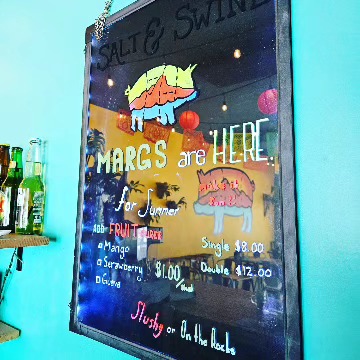 SALT & SWINE
MARGS are HERE..
for Summer
ADD FRUIT
Mango
Strawberry $1.00
Guava
Single $8.00
Double $12.00
Slushy or On the Rocks